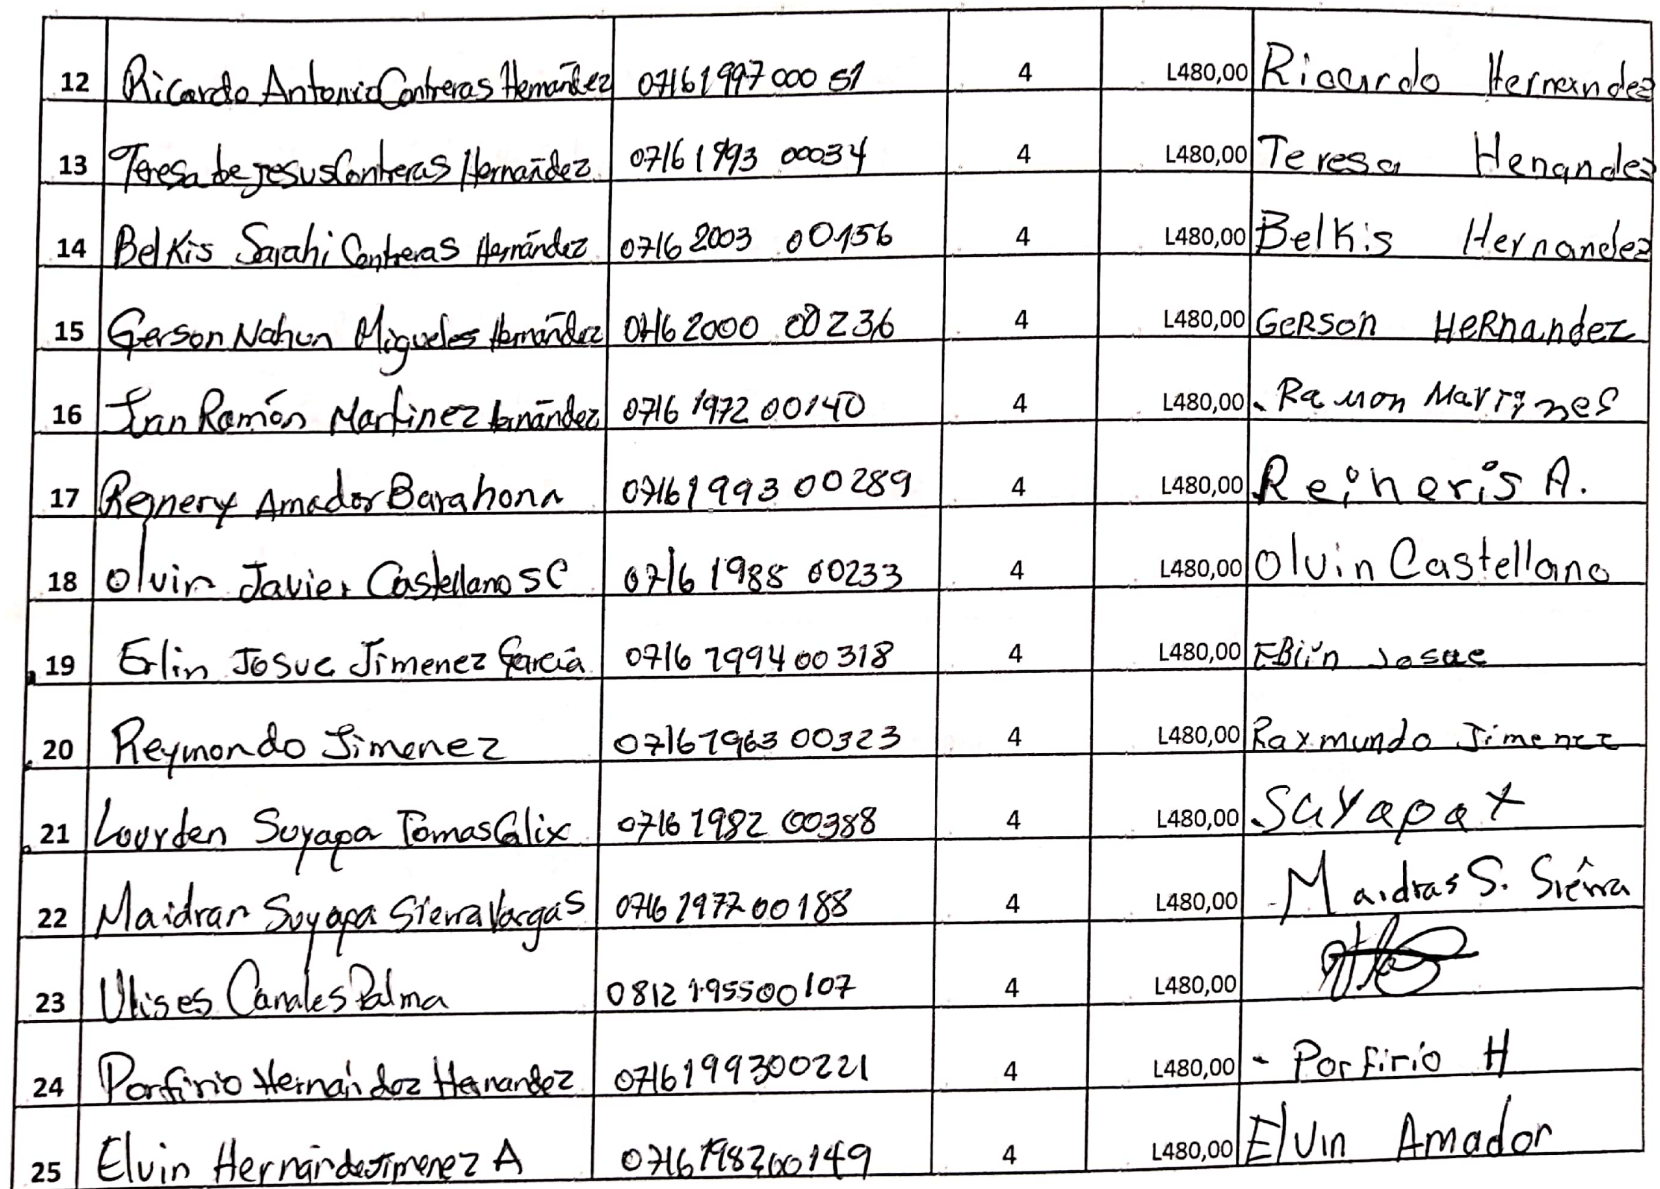 12 Ricardo Antonio Contreras Hernández 0716 1997 000 51 4 L480,00 Ricardo Hernandez
13 Teresa de Jesus Contreras Hernández 0716 1993 00034 4 L480,00 Teresa Henandez
14 Belkis Sarahi Contreras Hernández 0716 2003 00156 4 L480,00 Belkis Hernandez
15 Gerson Nahun Migueles Hernández 0716 2000 00236 4 L480,00 GERSON HeRnandez
16 Ivan Ramón Martinez Hernández 0716 1972 00140 4 L480,00 Ramon Martines
17 Regnery Amador Barahona 0716 1993 00289 4 L480,00 Reineris A.
18 Olvin Javier Castellanos C 0716 1988 00233 4 L480,00 Olvin Castellano
19 Erlin Josue Jimenez Garcia 0716 1994 00318 4 L480,00 EBlin Josue
20 Reymondo Jimenez 0716 1963 00323 4 L480,00 Raymundo Jimenez
21 Lourden Suyapa Tomas Calix 0716 1982 00388 4 L480,00 Suyapa t
22 Maidran Suyapa Sierra Vargas 0716 1977 00188 4 L480,00 Maidras S. Siêrra
23 Ulises Canales Palma 0812 1955 00107 4 L480,00
24 Porfirio Hernández Hernandez 0716199300221 4 L480,00 - Porfirio H
25 Elvin Hernández Jimenez A 0716198200149 4 L480,00 Elvin Amador